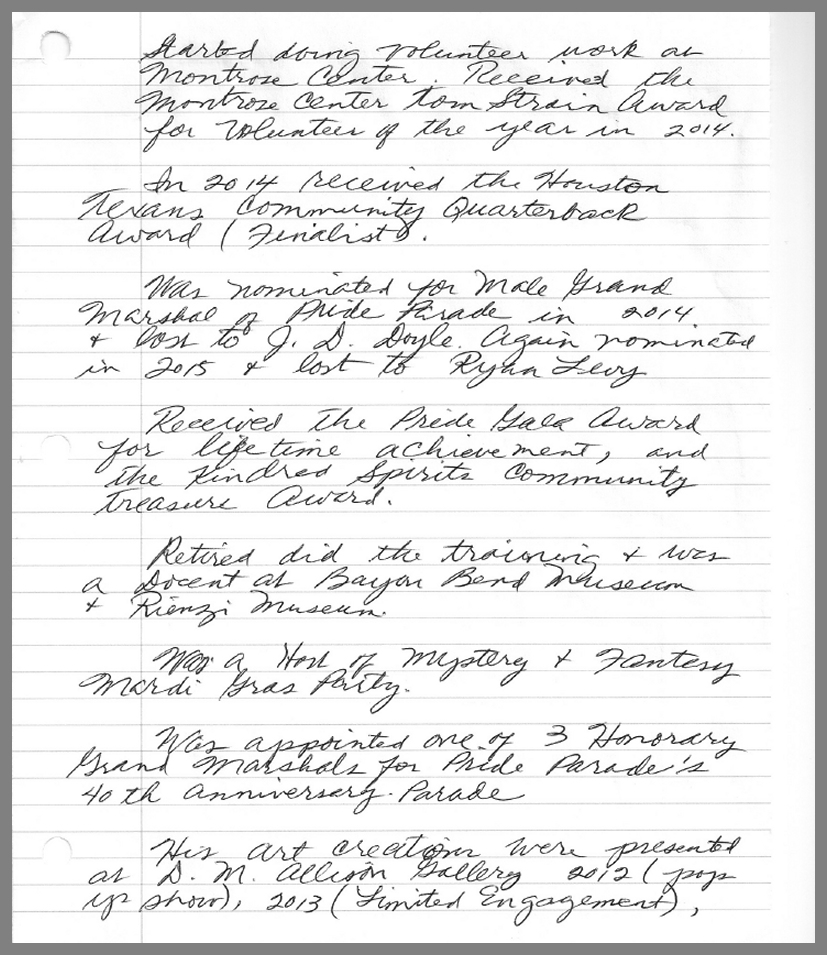 Started doing volunteer work at
Montrose Center. Received the
Montrose Center Tom Strain Award
for Volunteer of the year in 2014.
In 2014 received the Houston
Texans Community Quarterback
Award (Finalist).
Was nominated for Male Grand
Marshal of Pride Parade in 2014
& lost to J. D. Doyle. Again nominated
in 2015 & lost to Ryan Levy
Received the Pride Gala Award
for lifetime achievement, and
the Kindred Spirits Community
Treasure Award.
Retired did the training & was
a Docent at Bayou Bend Museum
& Rienzi Museum.
Was a Host of Mystery & Fantesy
Mardi Gras Party.
Was appointed one of 3 Honorary
Grand Marshals for Pride Parade's
40th anniversary. Parade
His art creations were presented
at D. M. Allison Gallery 2012 (pop
up show), 2013 (Limited Engagement),